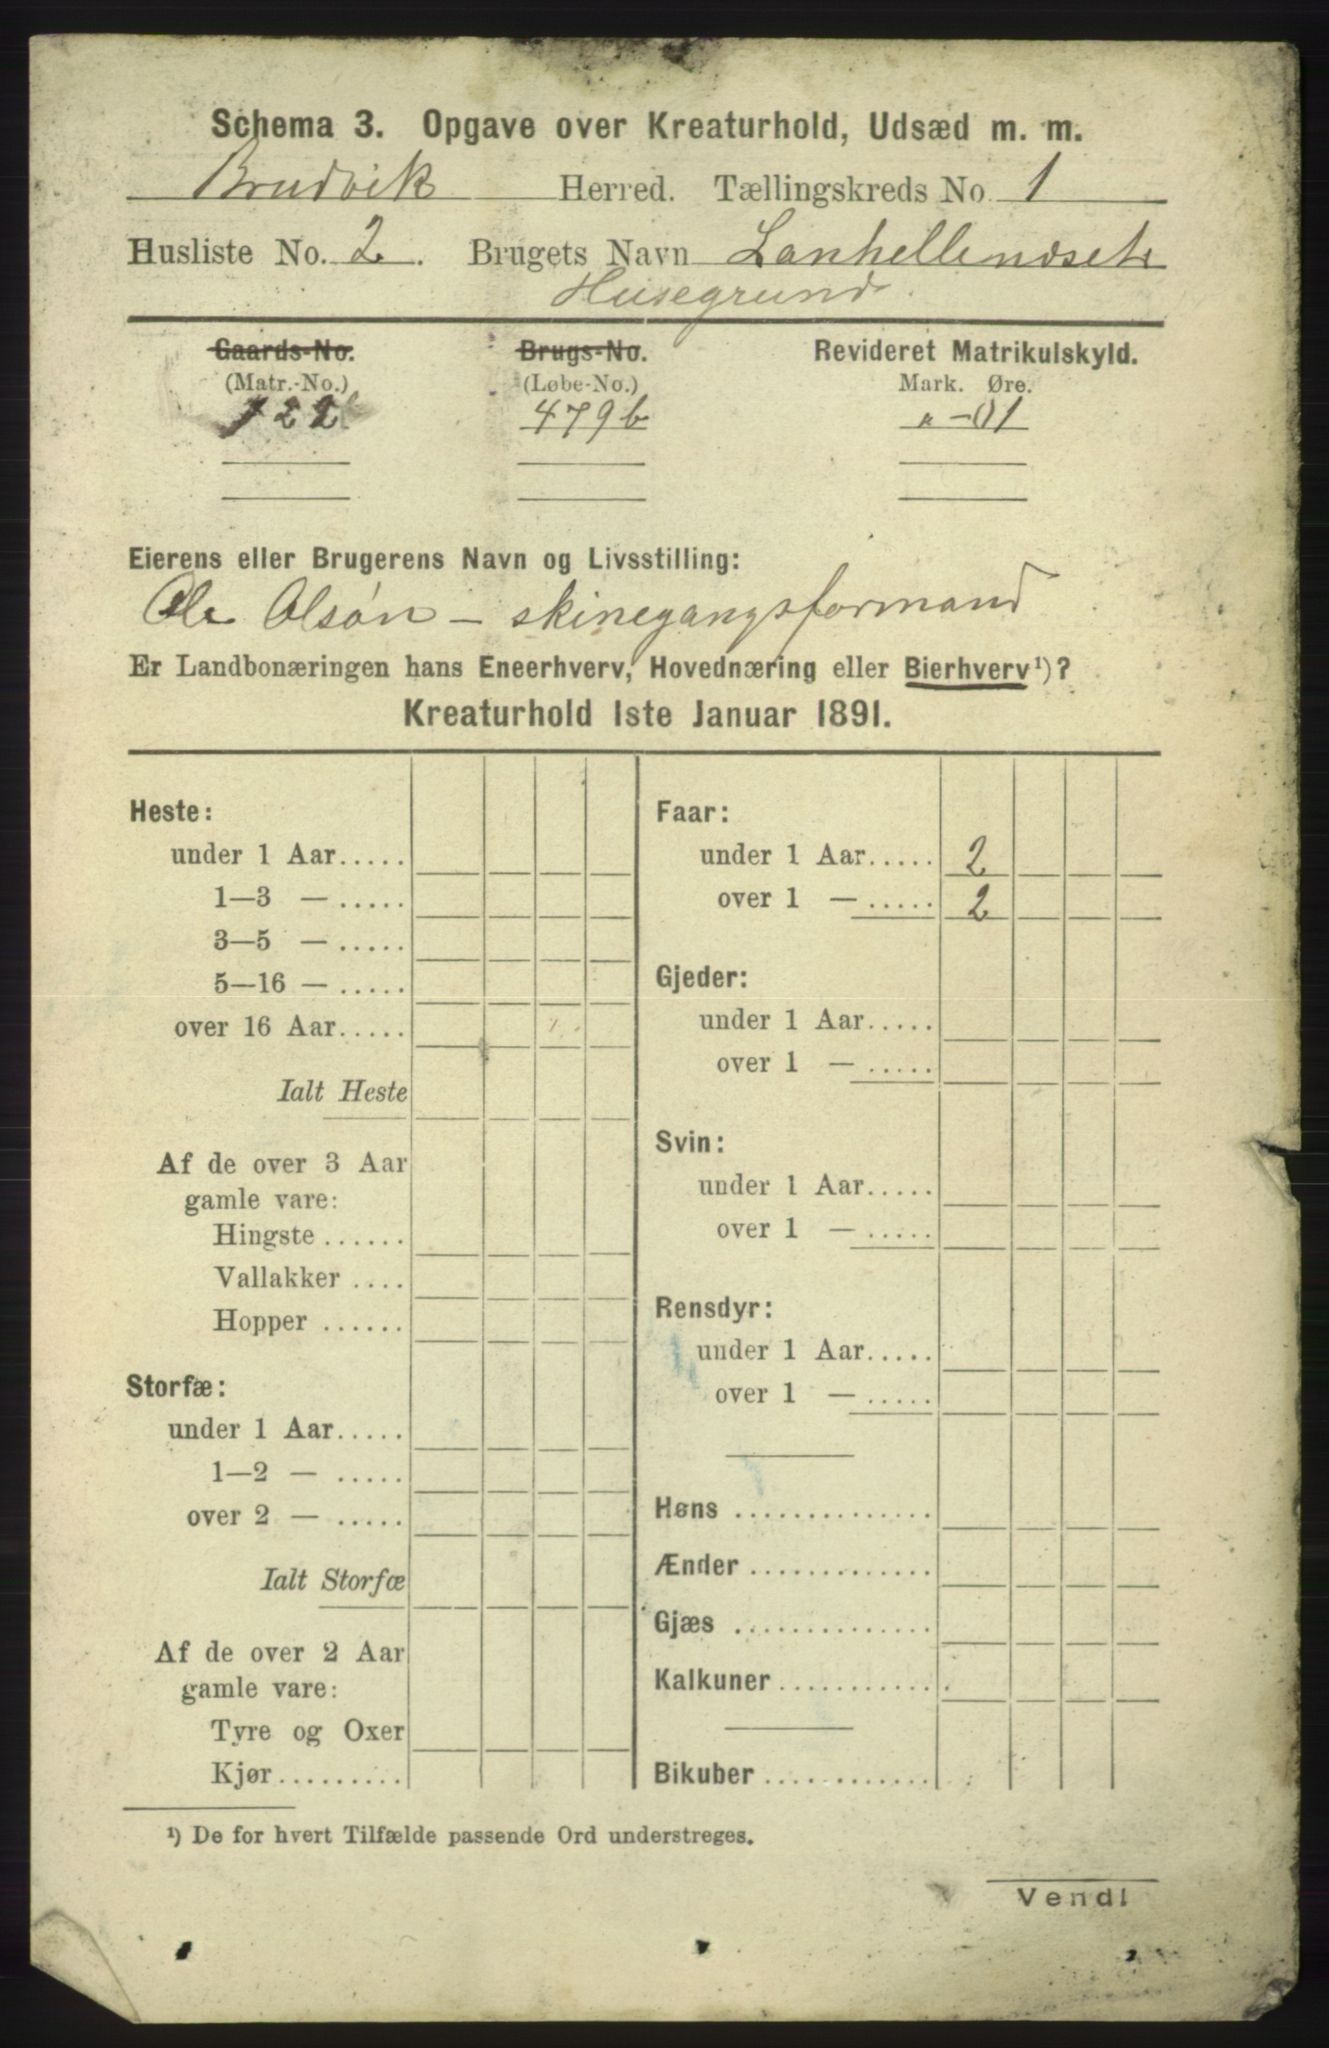 Schema 3. Opgave over Kreaturhold, Udsæd m. m.
Brudvik Herred. Tællingskreds No. 1
Husliste No. 2. Brugets Navn Lanhellendset
Husegrund.
Gaards-No. Brugs-No. Revideret Matrikulskyld.
(Matr.-No.) (Løbe-No.) Mark. Øre.
122 479b " - 01
Eierens eller Brugerens Navn og Livsstilling:
Ole Olsøn - skinegangsformand
Er Landbonæringen hans Eneerhverv, Hovednæring eller Bierhverv¹)?
Kreaturhold 1ste Januar 1891.
Heste:
under 1 Aar.....
1—3 — .....
3—5 — .....
5—16 — .....
over 16 Aar.....
Ialt Heste
Af de over 3 Aar
gamle vare:
Hingste ......
Vallakker ....
Hopper ......
Storfæ:
under 1 Aar.....
1—2 — .....
over 2 — .....
Ialt Storfæ
Af de over 2 Aar
gamle vare:
Tyre og Oxer
Kjør.........
Faar:
under 1 Aar..... 2
over 1 — ..... 2
Gjeder:
under 1 Aar.....
over 1 — .....
Svin:
under 1 Aar.....
over 1 — .....
Rensdyr:
under 1 Aar.....
over 1 — .....
Høns ..............
Ænder .............
Gjæs ..............
Kalkuner ............
Bikuber .............
¹) De for hvert Tilfælde passende Ord understreges.
Vend!